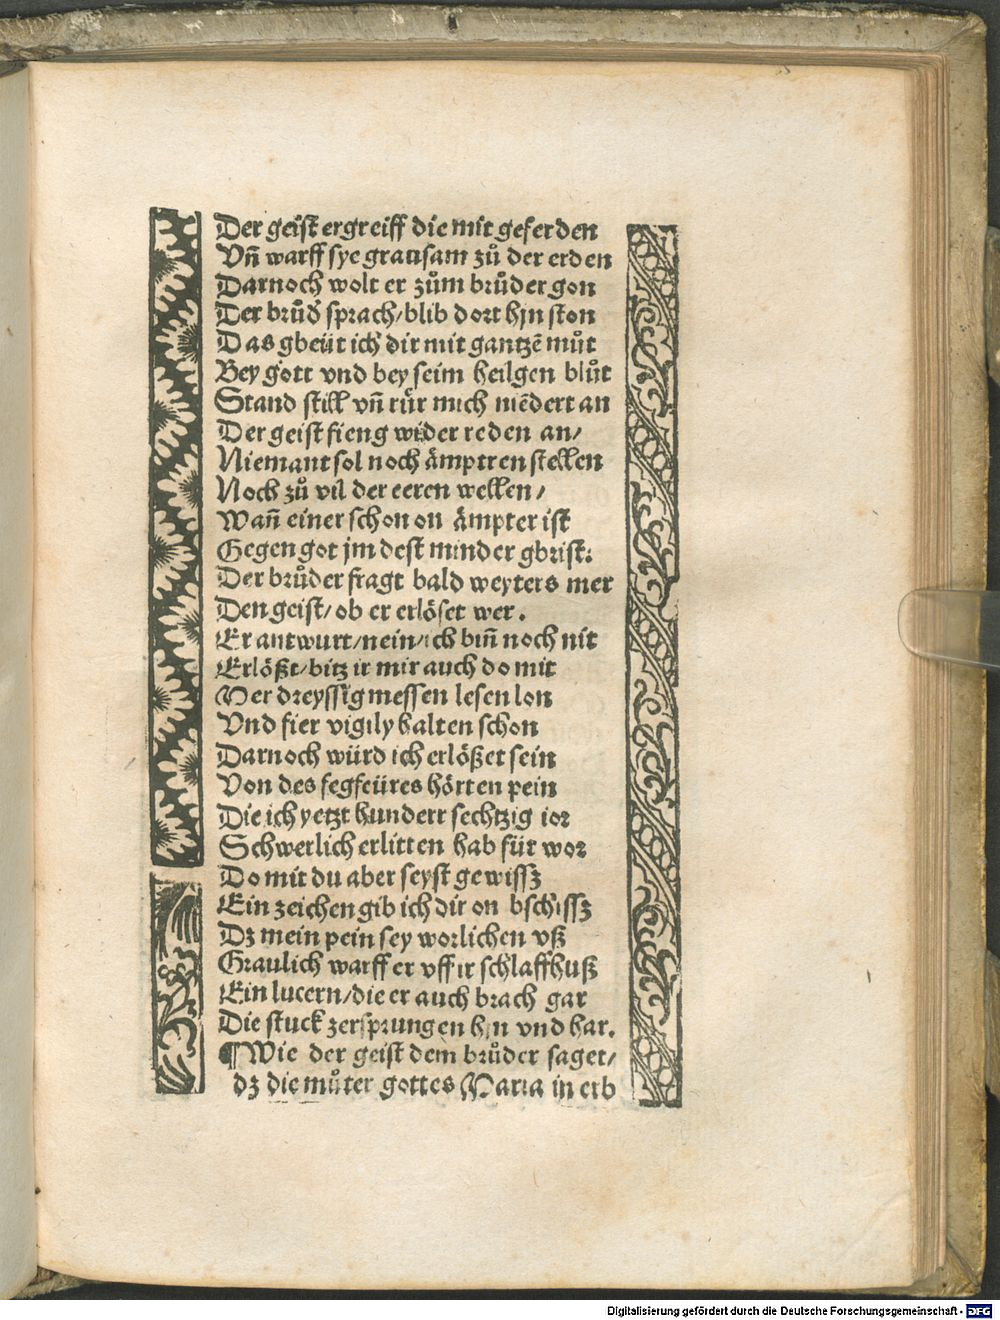 Der geist ergreiff die mit geferden
Vñ warff sye grausam zů der erden
Darnoch wolt er zům brůder gon
Der brůd' sprach/blib dort hyn ston
Das gbeüt ich dir mit gantzē můt
Bey gott vnd bey seim heilgen blůt
Stand still vñ rür mich niēdert an
Der geist fieng wider reden an/
Niemant sol noch ämptren stellen
Noch zů vil der eeren wellen/
Wañ einer schon on ämpter ist
Gegen got jm dest minder gbrist:
Der brůder fragt bald weyters mer
Den geist/ob er erlöset wer.
Er antwurt/nein/ich biñ noch nit
Erlößt/bitz ir mir auch do mit
Der dreyssig messen lesen lon
Vnd fier vigily halten schon
Darnoch würd ich erlößet sein
Von des fegfeüres hörten pein
Die ich yetzt hundert sechtzig ior
Schwerlich erlitten hab für wor
Do mit du aber seyst gewissz
Ein zeichen gib ich dir on bschissz
Dz mein pein sey worlichen vß
Graulich warff er vff ir schlaffhuß
Ein lucern/die er auch brach gar
Die stuck zersprungen hyn vnd har.
¶Wie der geist dem brůder saget/
dz die můter gottes Maria in erb
Digitalisierung gefördert durch die Deutsche Forschungsgemeinschaft - DFG